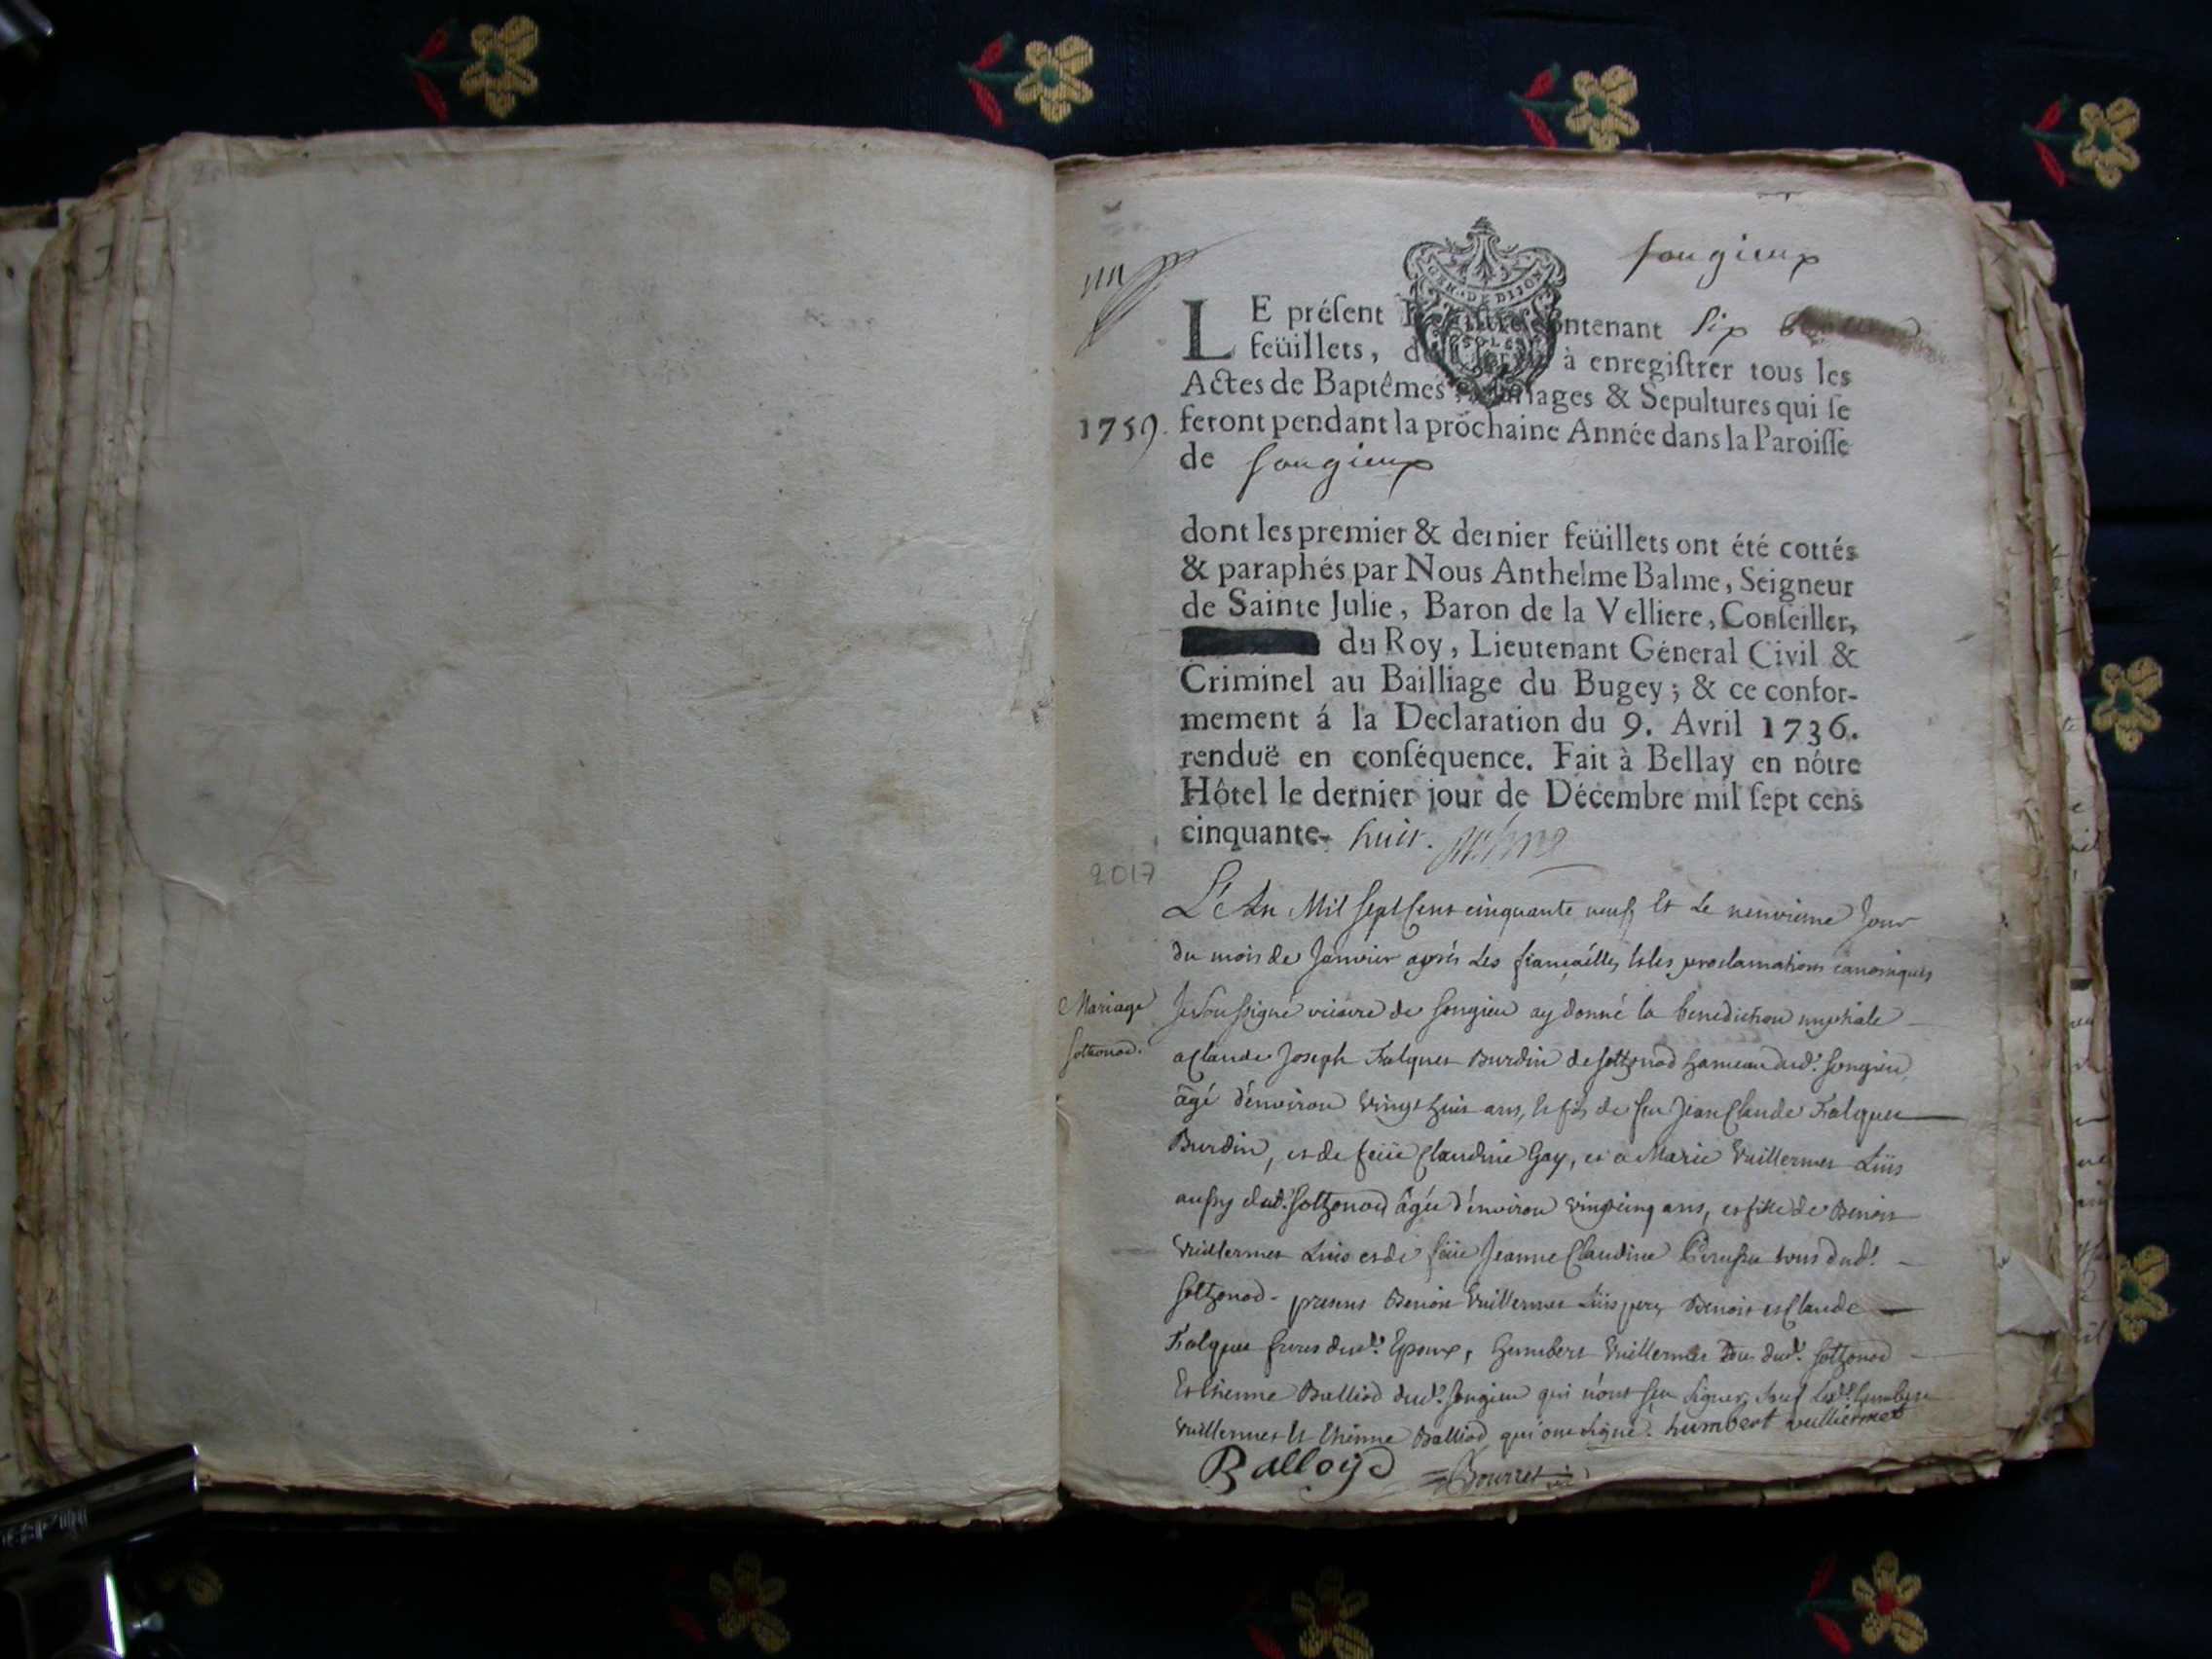 Songieux
GEN. DE DIJON
LE préſent Regiſtre contenant Six
feüillets, doit ſervir à enregiſtrer tous les
Actes de Baptêmes, Mariages & Sepultures qui ſe
1759. feront pendant la prochaine Année dans la Paroiſſe
de Songieux
dont les premier & dernier feüillets ont été cottés
& paraphés par Nous Anthelme Balme, Seigneur
de Sainte Julie, Baron de la Velliere, Conſeiller,
du Roy, Lieutenant Géneral Civil &
Criminel au Bailliage du Bugey; & ce confor-
mement á la Declaration du 9. Avril 1736.
renduë en conſéquence. Fait à Bellay en nôtre
Hôtel le dernier jour de Décembre mil ſept cens
cinquante- huit.
2017
L'An Mil Sept Cent cinquante neuf et Le neuvieme Jour
du mois de Janvier après Les fiançailles et les proclamations canoniques
Mariage Je Soussigné vicaire de Songieu ay donné la benediction nuptiale
Sothonod. a Claude Joseph Falquet Burdin de Sothonod hameau dud. Songieu
âgé d'environ vingt huit ans, et fils de feu Jean Claude Falquet
Burdin, et de feüe Claudine Gay, et a Marie Vuillermet Luis
aussy dud. Sothonod âgée d'environ vingt cinq ans, et fille de Benoit
Vuillermet Luis et de feüe Jeanne Claudine tous dud.
Sothonod - presens Benoit Vuillermet Luis pere, Benoit et Claude
Falquet freres dud. Epoux, humbert Vuillermet dud. Sothonod
Et Etienne Balliod dud. Songieu qui n'ont sçu signer, sauf led. humbert
Vuillermet et Etienne Balliod qui ont signé. humbert vulliermet
Balloyd Bourret